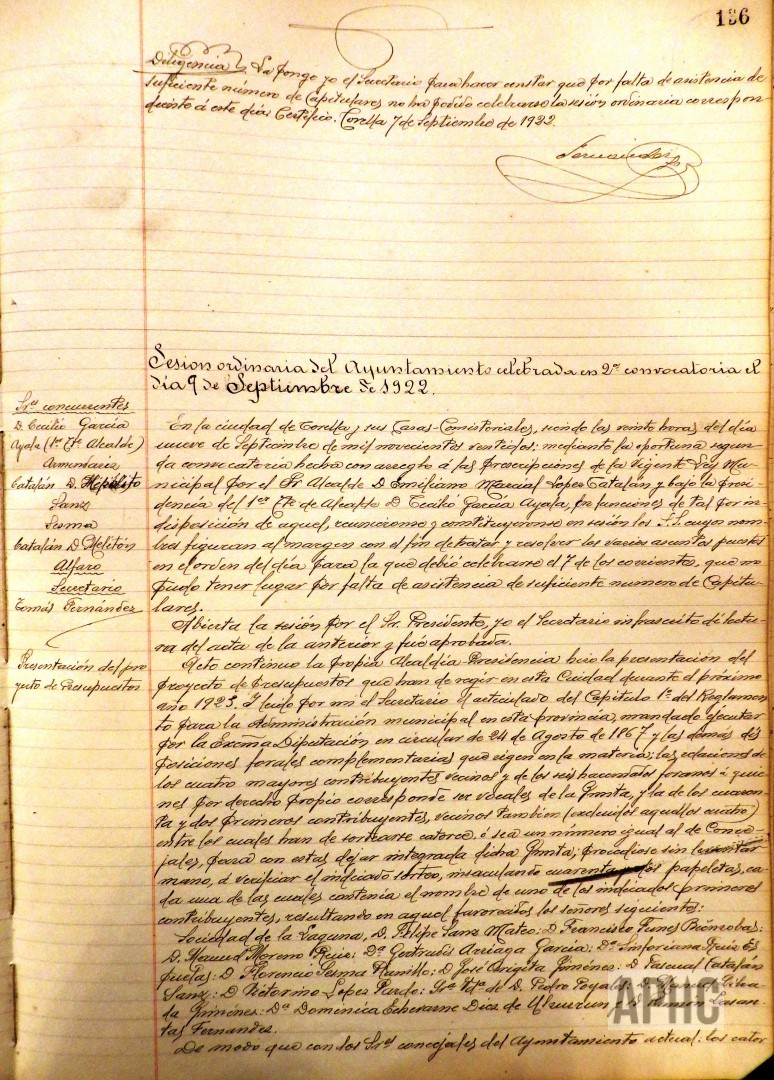 136
Diligencia. La pongo yo el Secretario para hacer constar que por falta de asistencia de
suficiente número de Capitulares no ha podido celebrarse la sesión ordinaria correspon
diente á este día. Certifico. Corella 7 de Septiembre de 1922.
Sesion ordinaria del Ayuntamiento celebrada en 2ª convocatoria el
día 9 de Septiembre de 1922.
Sres concurrentes
D. Cecilio García
Ayala (1er Tte Alcalde)
Armendariz
Catalán D. Hipólito
Sanz
Sesma
Catalán D. Melitón
Alfaro
Secretario
Tomás Fernández
Presentación del pro
yecto de Presupuestos
En la ciudad de Corella y sus Casas-Consistoriales, siendo las veinte horas del día
nueve de Septiembre de mil novecientos veintidos: mediante la oportuna segun
da convocatoria hecha con arreglo á las prescripciones de la vigente Ley Mu
nicipal por el Sr Alcalde D. Emiliano Marcial Lopez Catalan y bajo la presi
dencia del 1er Tte de Alcalde D. Cecilio García Ayala, en funciones de tal por in
disposición de aquel, reunieronse y constituyeronse en sesión los S.S. cuyos nom
bres figuran al margen con el fin de tratar y resolver los varios asuntos puestos
en el orden del día para la que debió celebrarse el 7 de los corrientes, que no
pudo tener lugar por falta de asistencia de suficiente numero de Capitu
lares.
Abierta la sesión por el Sr. Presidente, yo el Secretario infrascrito dí lectu
ra del acta de la anterior y fué aprobada.
Acto continuo la propia Alcaldía Presidencia hizo la presentación del
proyecto de presupuestos que han de regir en esta Ciudad durante el próximo
año 1923. Y leido por mi el Secretario el articulado del Capitulo 1º del Reglamen
to para la Administración municipal en esta provincia, mandado ejecutar
por la Excma Diputación en circular de 24 de Agosto de 1867 y las demás dis
posiciones forales complementarias que rigen en la materia; las relaciones de
los cuatro mayores contribuyentes vecinos y de los seis hacendados foranos á quie
nes por derecho propio corresponde ser vocales de la Junta, y la de los cuaren
ta y dos primeros contribuyentes, vecinos tambien (excluidos aquellos cuatro)
entre los cuales han de sortearse catorce, ó sea un número igual al de Conce
jales, para con estos dejar integrada dicha Junta; procediose sin levantar
mano, á verificar el indicado sorteo, insaculando cuarenta y dos papeletas, ca
da una de las cuales contenía el nombre de uno de los indicados primeros
contribuyentes, resultando en aquel favorecidos los señores siguientes:
Sociedad de la Laguna, D. Felipe Sanz Mateo: D. Francisco Funes
D. Manuel Moreno Ruiz: Dª Gertrudis Arriaga Garcia: Dª Sinforiana Ruiz Es
puelas: D. Florencio Sesma Munillo: D. José Virgita Jiménez: D. Pascual Catalán
Sanz: D. Victorino Lopez Pardo: Sra Vda de D. Pedro Poyales: D. Manuel
da Jimenez: Dª Dominica Echevarne Diez de Ulzurrun y D. Ramón Lasan
tas Fernandez.
De modo que con los Sres concejales del Ayuntamiento actual: los cator
APHC